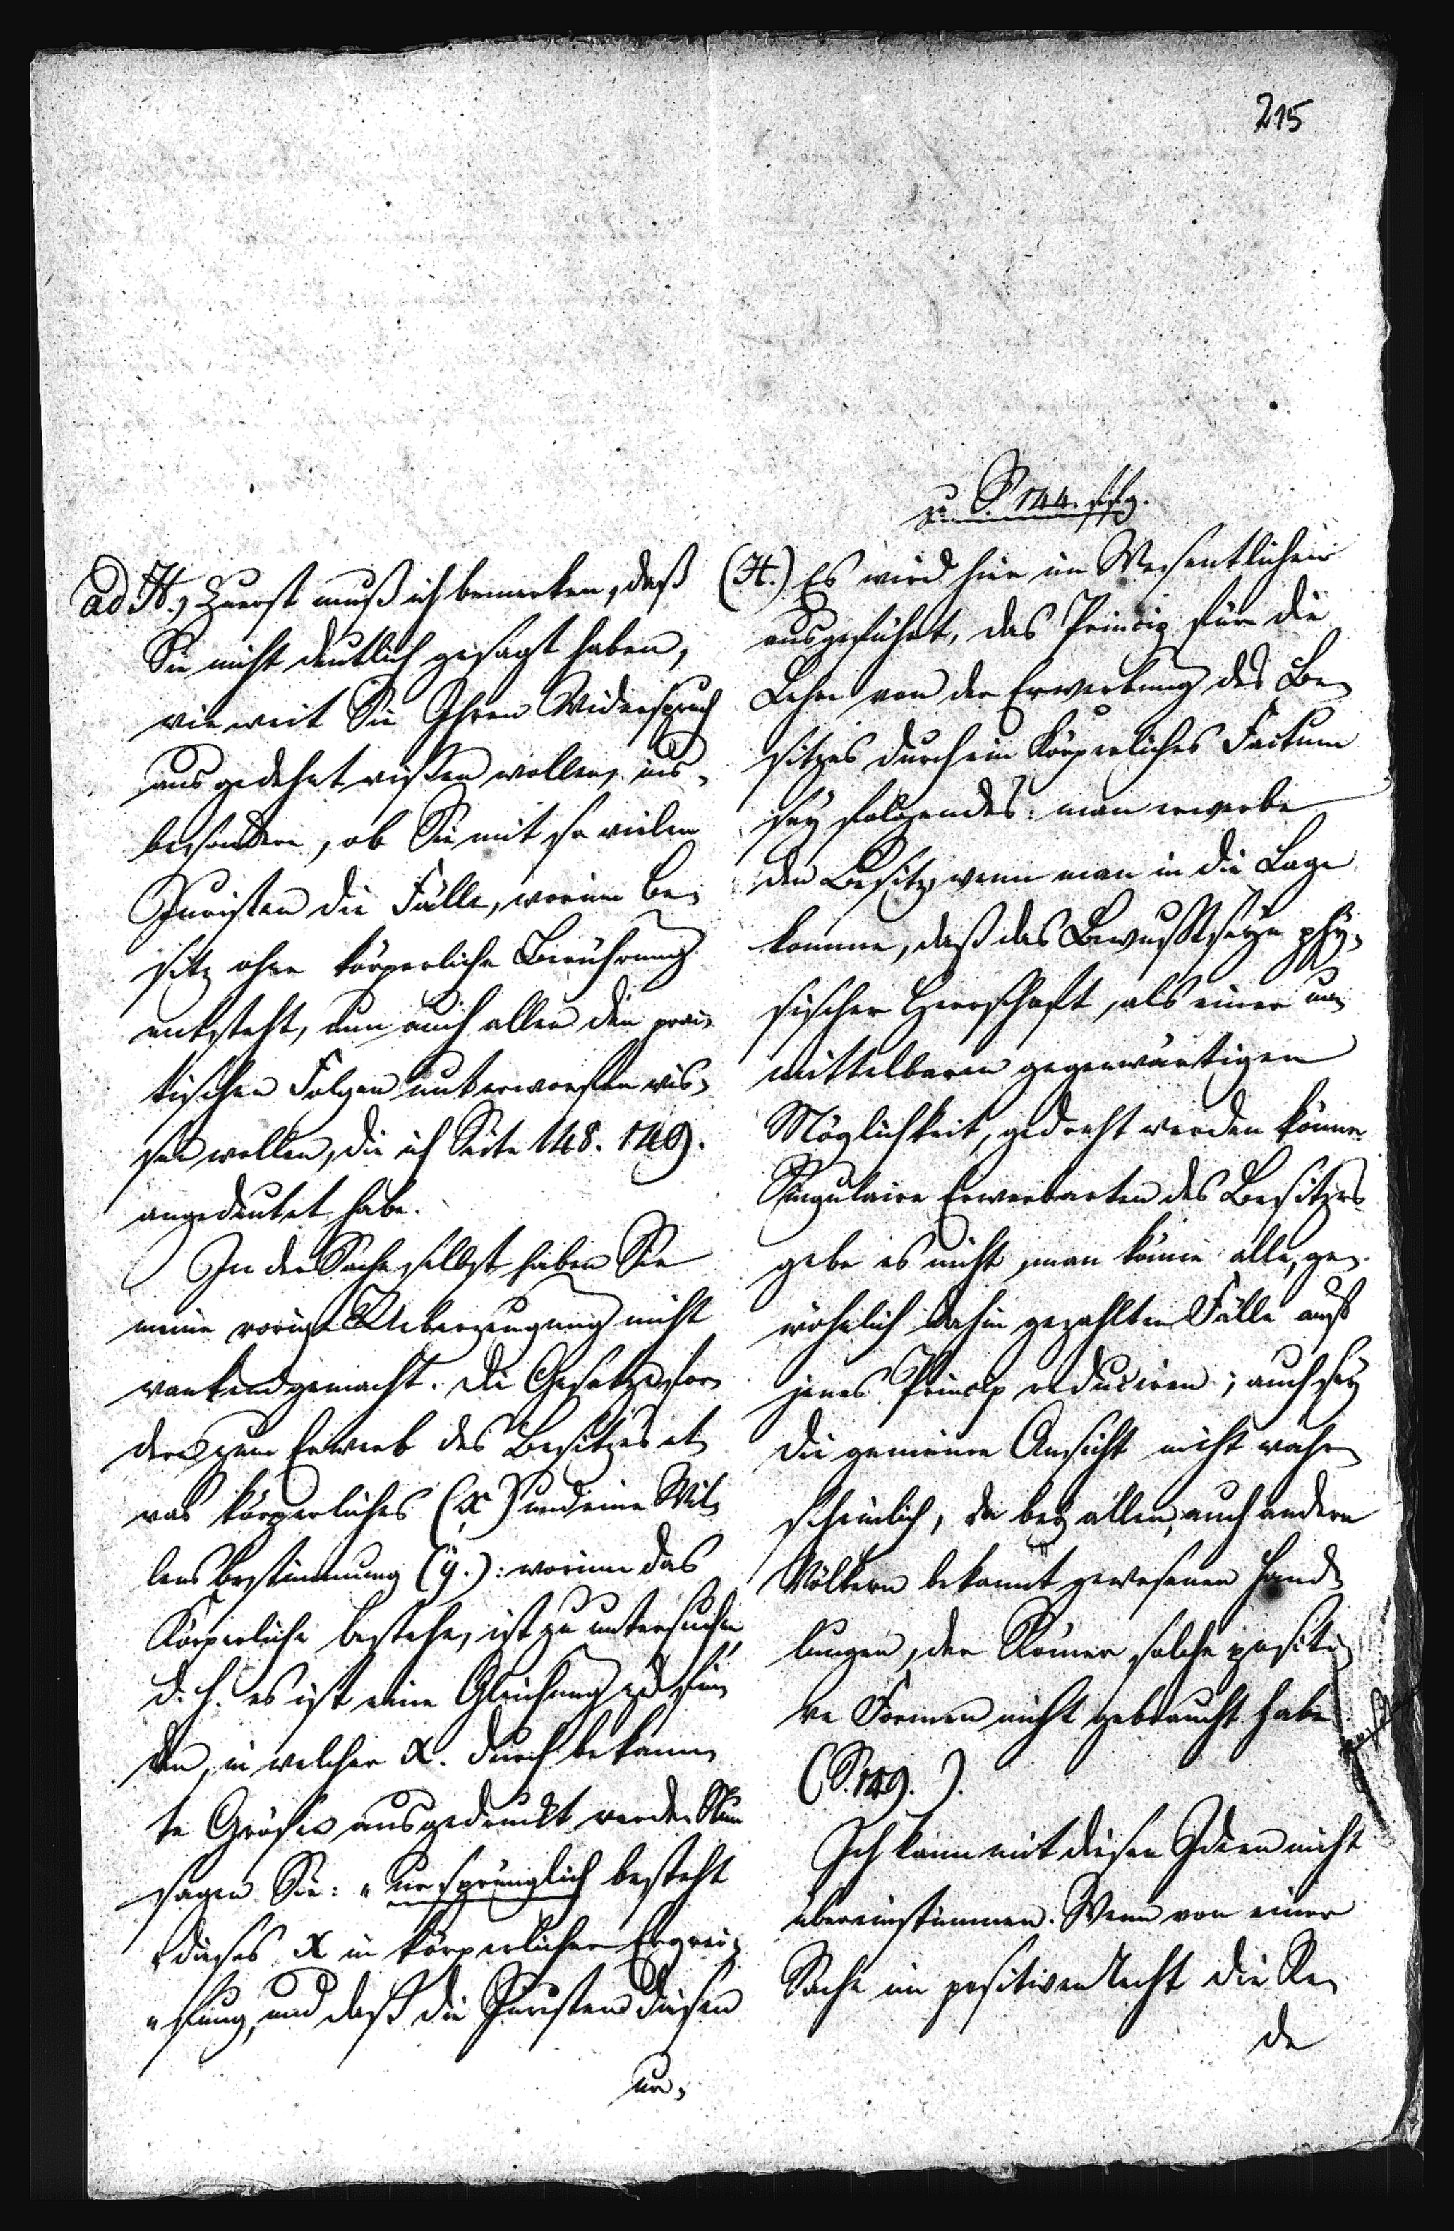 215
ad H., Zuerst muß ich bemerken, daß
Sie nicht deutlich gesagt haben,
wie weit Sie Ihren Widerspruch
ausgedehnt wißen wollen, ins-
besondere, ob Sie mit so vielen
Juristen die Fälle, worinn Be-
sitz ohne körperliche Berührung
entsteht, nun auch allen den prac-
tischen Folgen unterworfen wis-
sen wollen, die ich Seite 148. 149.
angedeutet habe.
In der Sache selbst haben Sie
meine vorige Ueberzeugung nicht
wankend gemacht. Die Gesetze for-
dern zum Erwerb des Besitzes et-
was körperliches (x) und eine Wil-
lensbestimmung (y.): worinn das
Körperliche bestehe, ist zu untersuchen,
d. h. es ist eine Gleichung zu fin-
den, in welcher x. durch bekann-
te Größen ausgedruckt werde. Nun
sagen Sie: „ursprünglich besteht
„dieses x in körperlicher Ergrei-
„fung, und daß die Juristen diesen
ur-
zu S. 144. sqq.
(H.) Es wird hier im Wesentlichen
ausgeführt, das Princip für die
Lehre von der Erwerbung des Be-
sitzes durch ein körperliches Factum
sey folgendes: man erwerbe
den Besitz, wenn man in die Lage
komme, daß das Bewußtseyn phy-
sischer Herrschaft, als einer un-
mittelbaren gegenwärtigen
Möglichkeit, gedacht werden könne.
Singulaire Erwerbarten des Besitzes
gebe es nicht, man könne alle, ge-
wöhnlich dahin gezählten Fälle auf
jenes Princip reduciren; auch sey
die gemeine Ansicht nicht wahr-
scheinlich, da bey allen, auch andern
Völkern bekannt gewesenen Hand-
lungen, der Römer solche positi-
ve Formen nicht gebraucht habe
(S. 149.).
Ich kann mit diesen Ideen nicht
übereinstimmen. Wenn von einer
Sache im positiven Recht die Re-
de